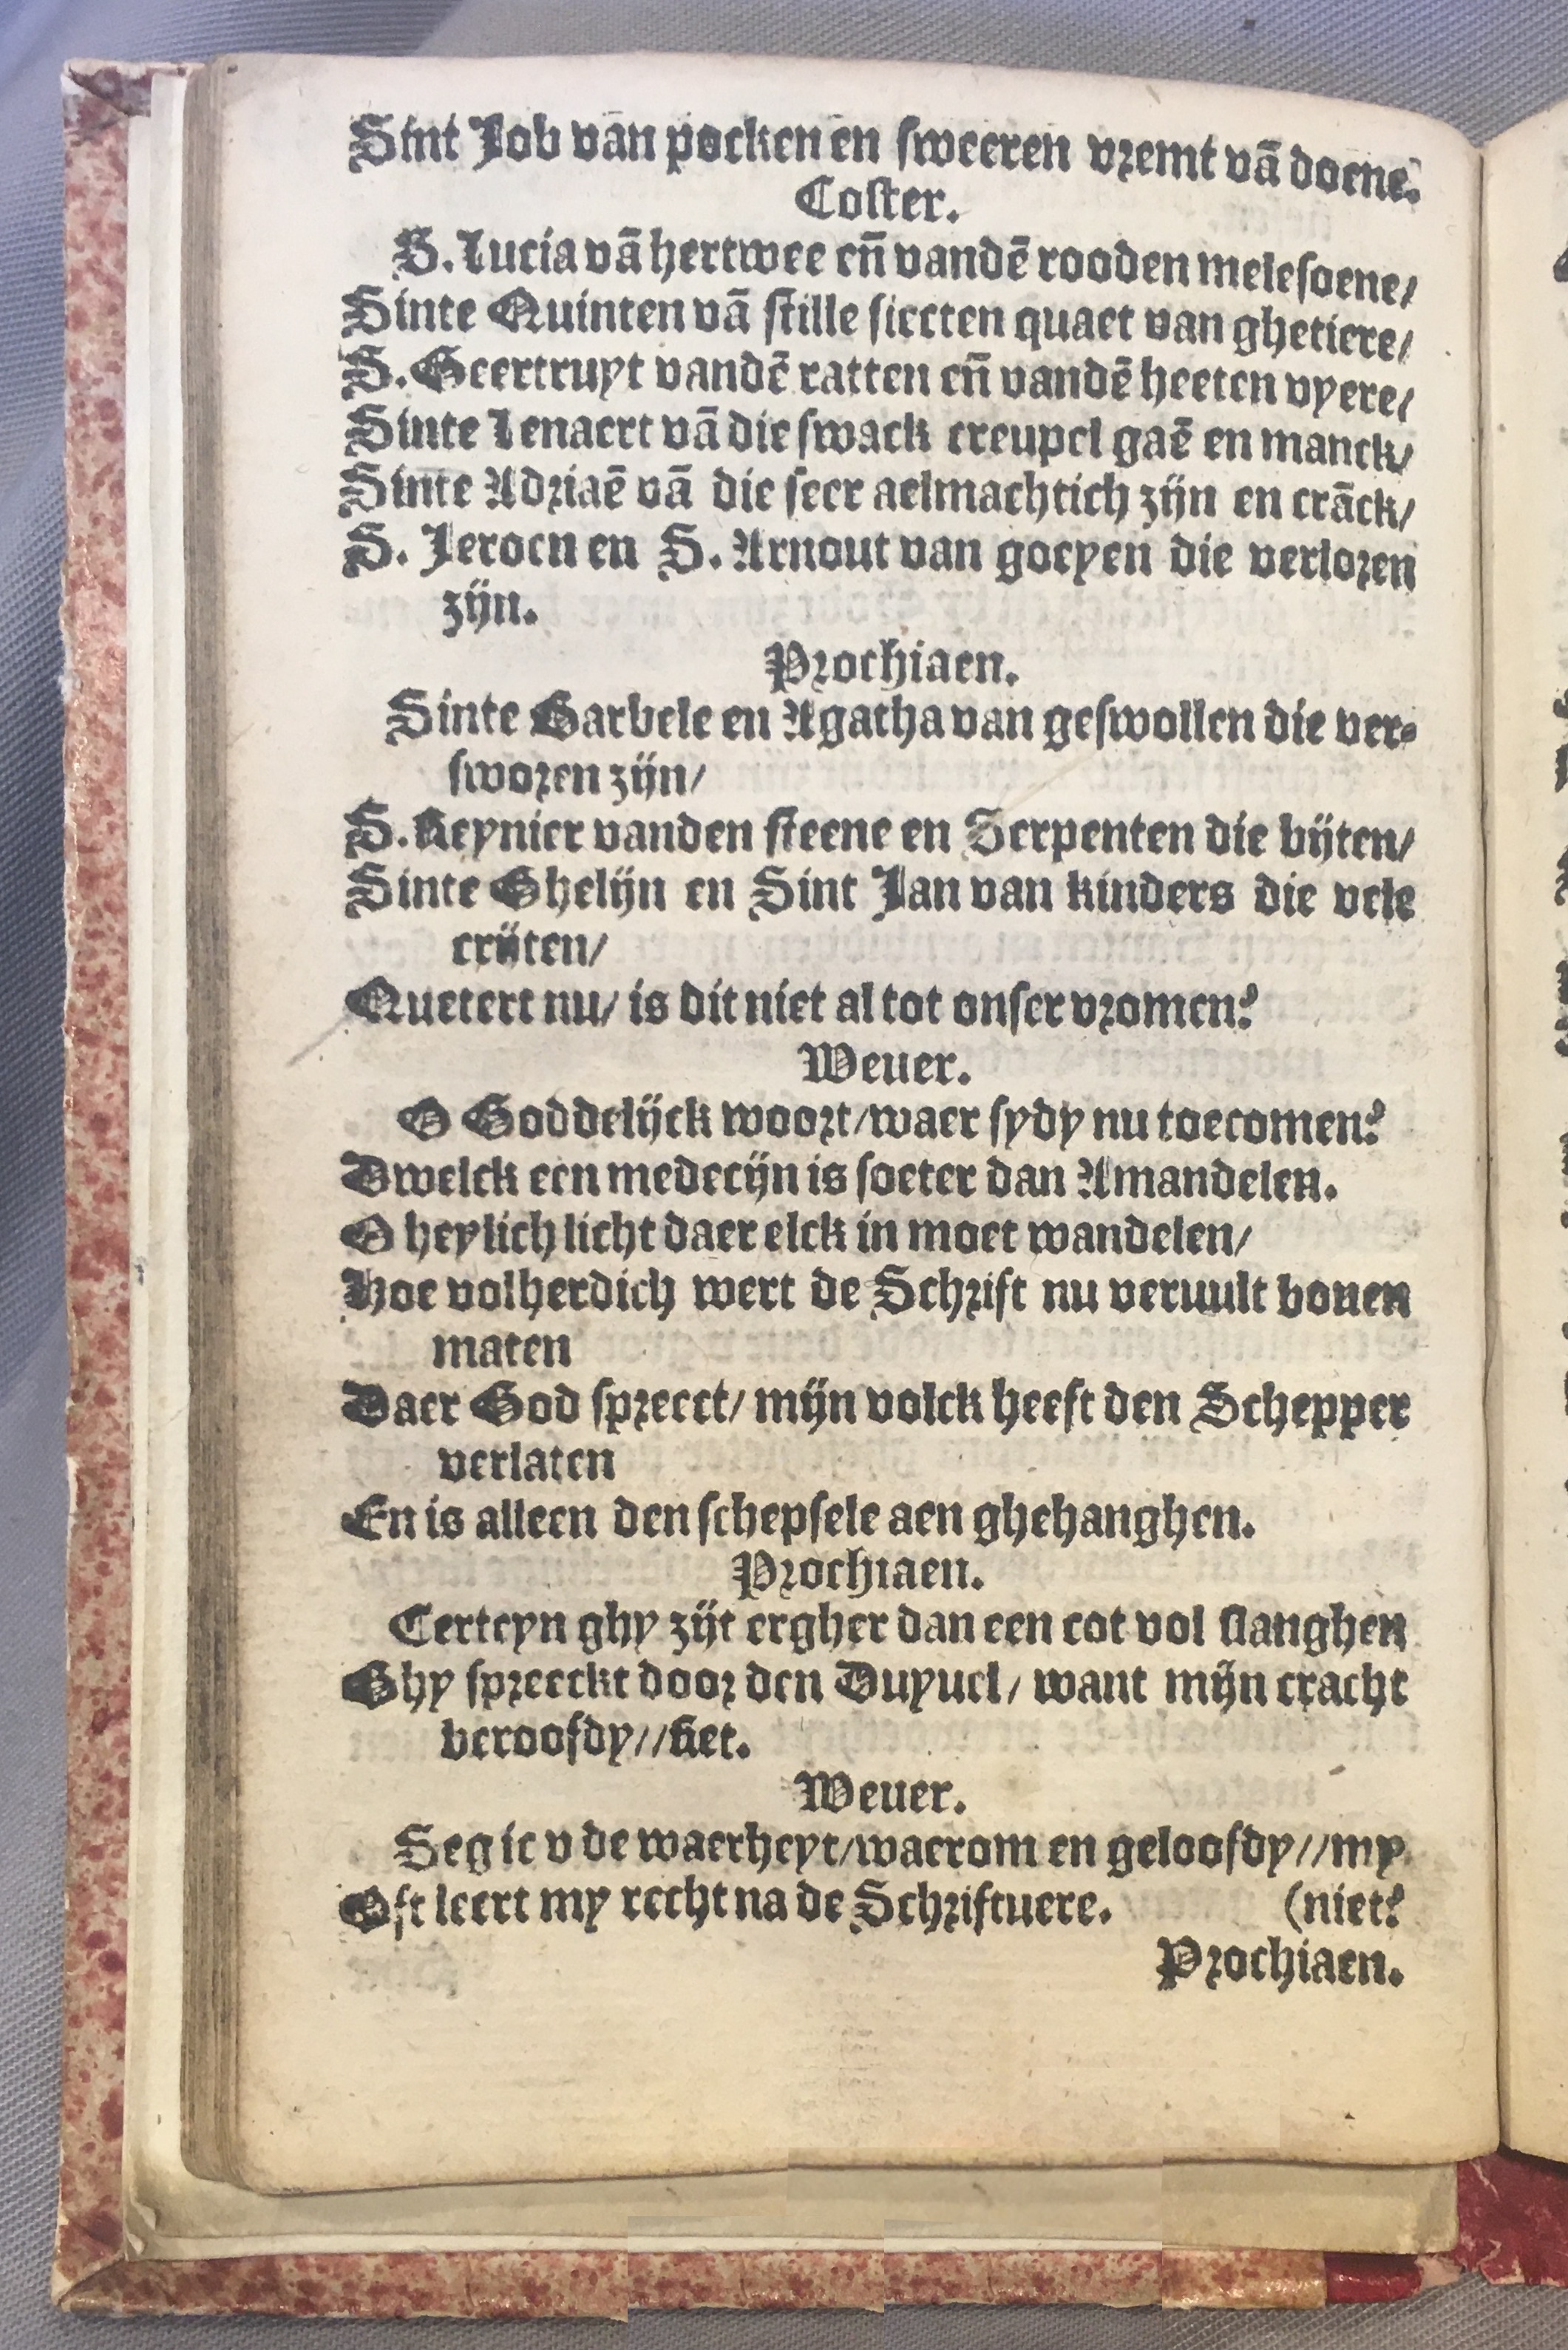 Sint Job van pocken en sweeren vremt vā doene.
Coster.
S. Lucia vā hertwee eñ vandē rooden melesoene/
Sinte Quinten vā stille siecten quaet van ghetiere/
S. Geertruyt vandē ratten eñ vandē heeten vyere/
Sinte Lenaert vā die swack creupel gaē en manck/
Sinte Adriaē vā die seer aelmachtich zijn en crāck/
S. Jeroen en S. Arnout van goeyen die verloren
zijn.
Prochiaen.
Sinte Barbele en Agatha van geswollen die ver-
sworen zijn/
S. Reynier vanden steene en Serpenten die bijten/
Sinte Ghelijn en Sint Jan van kinders die vele
crijten/
Quetert nu/ is dit niet al tot onser vromen?
Weuer.
O Goddelijck woort/ waer sydy nu toecomen?
Dwelck een medecijn is soeter dan Amandelen.
O heylich licht daer elck in moet wandelen/
Hoe volherdich wert de Schrift nu veruult bouen
maten
Daer God spreect/ mijn volck heeft den Schepper
verlaten
En is alleen den schepsele aen ghehanghen.
Prochiaen.
Certeyn ghy zijt ergher dan een cot vol slanghen
Ghy spreeckt door den Duyuel/ want mijn cracht
beroofdy//siet.
Weuer.
Seg ic v de waerheyt/waerom en geloofdy//my
Oft leert my recht na de Schriftuere. (niet?
Prochiaen.